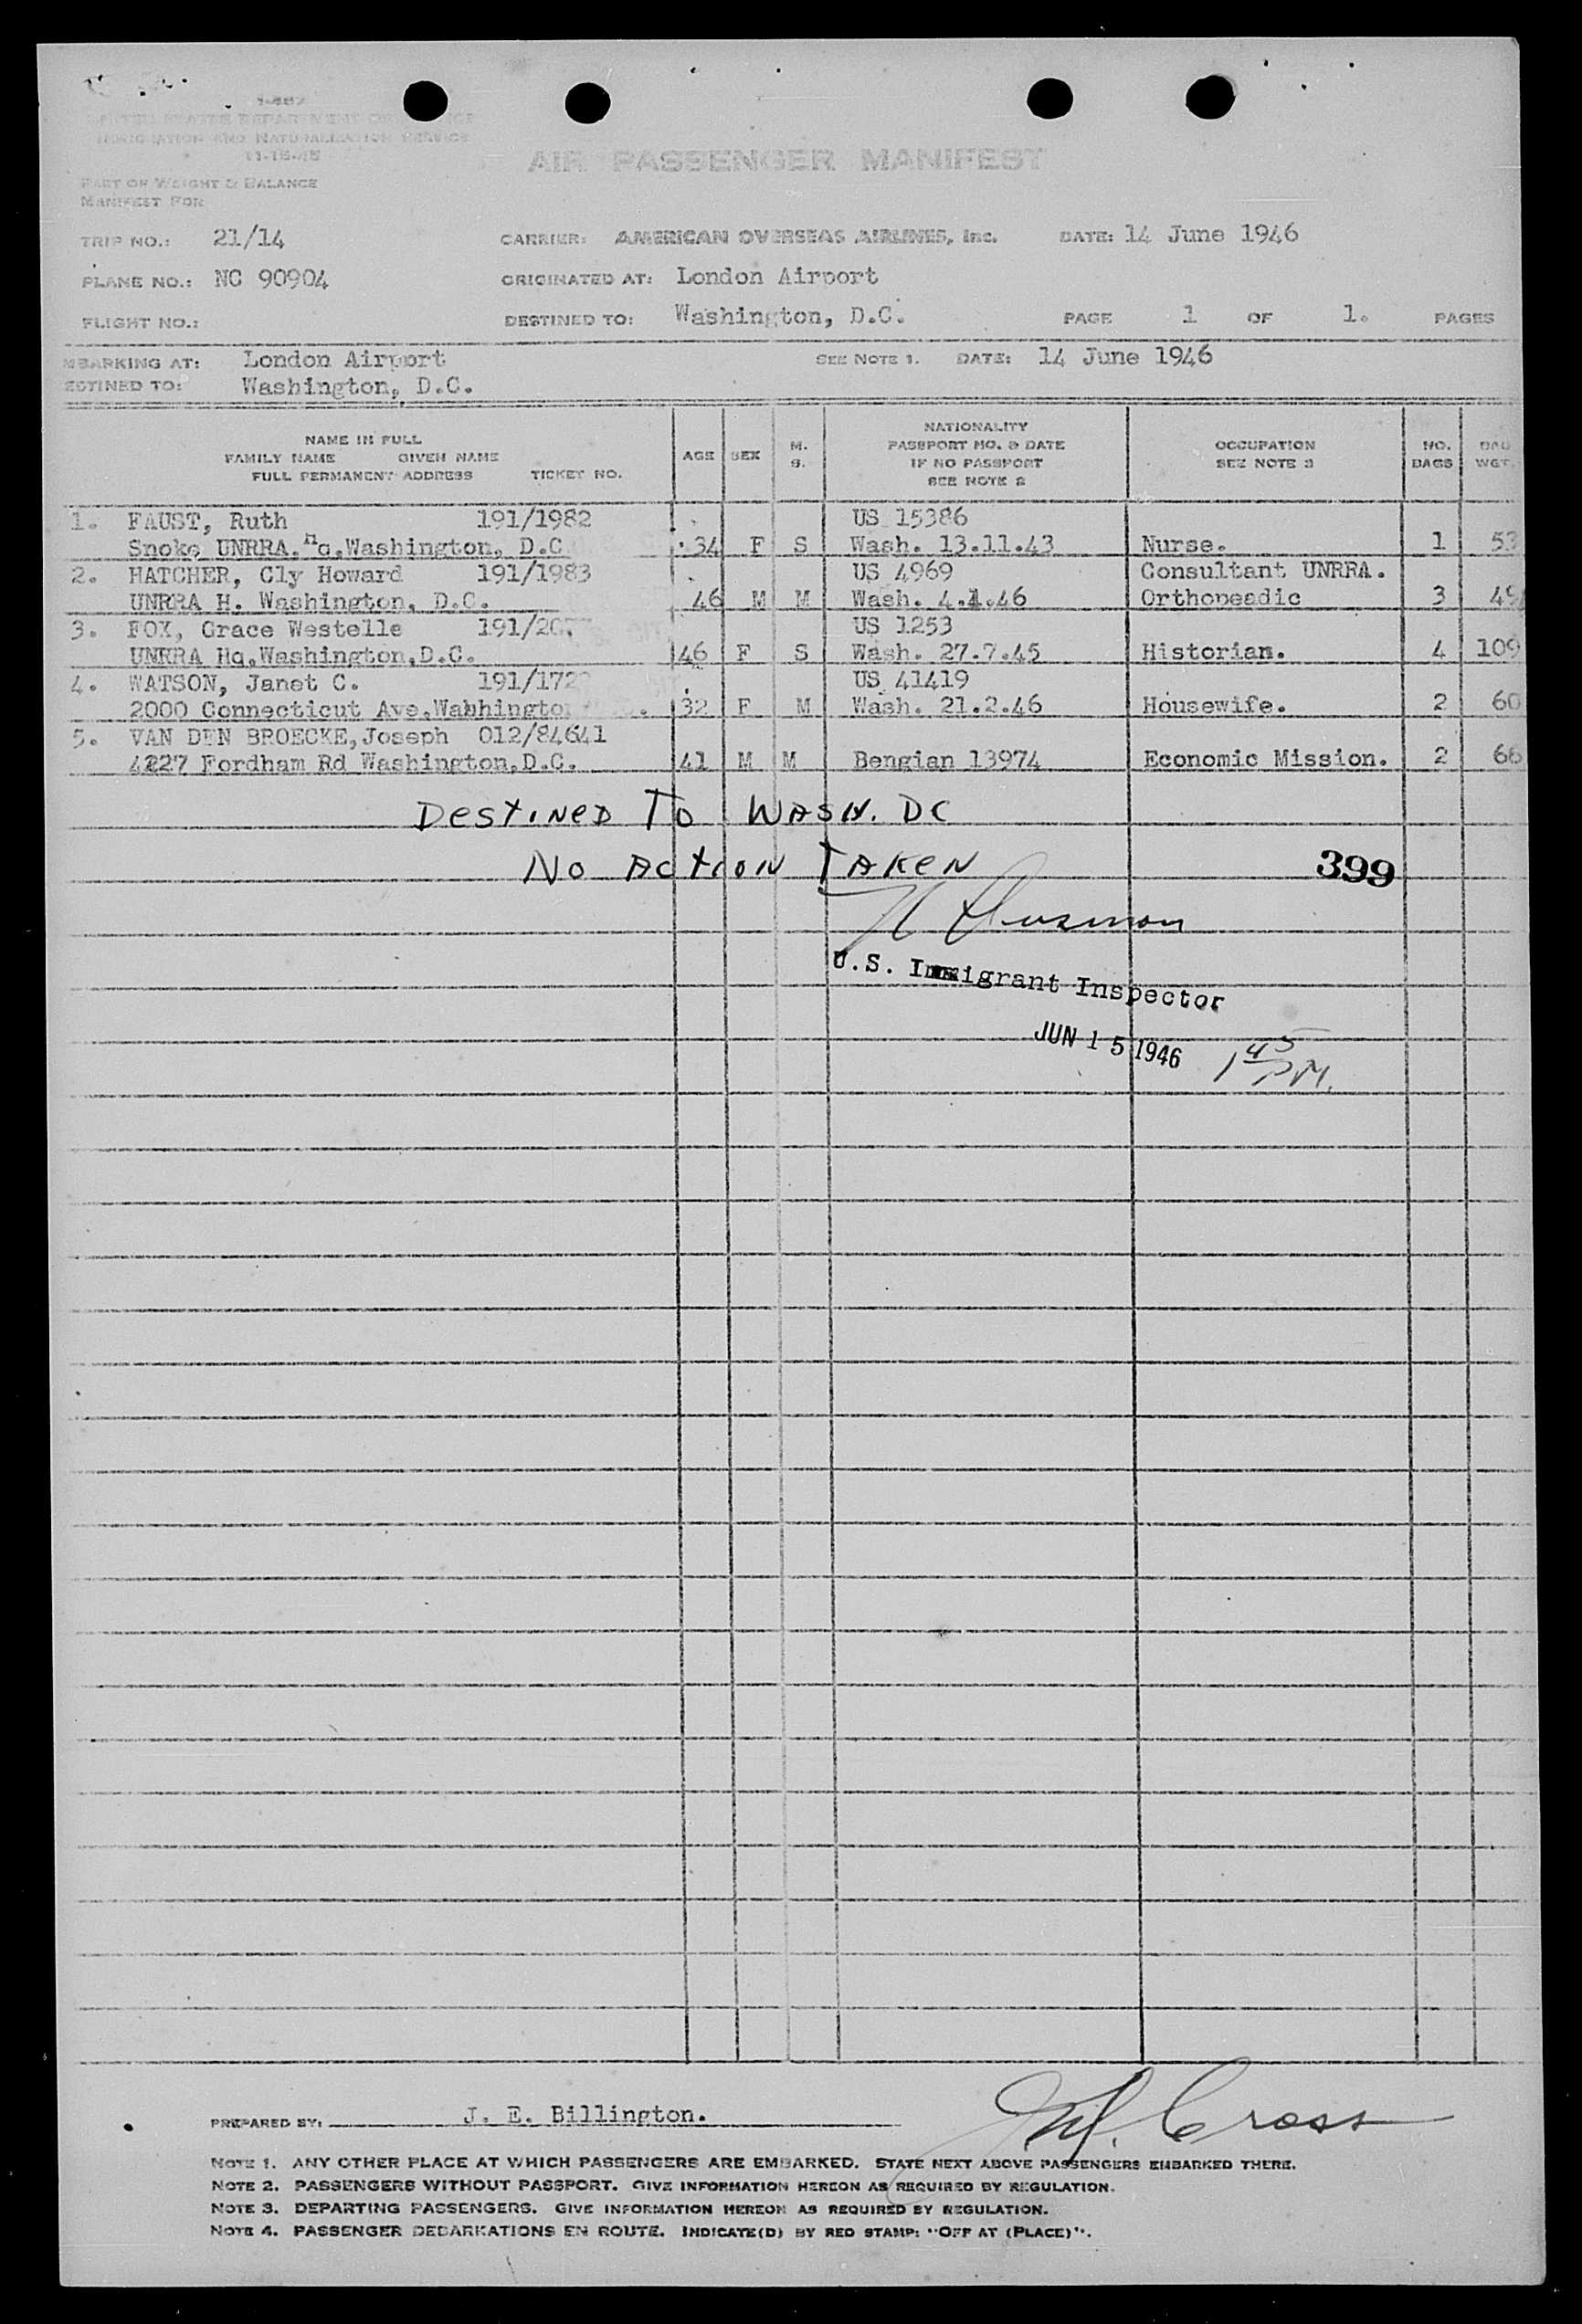 1-467
UNITED STATES DEPARTMENT OF JUSTICE
IMMIGRATION AND NATURALIZATION SERVICE
11-15-45
AIR PASSENGER MANIFEST
PART OF WEIGHT & BALANCE
MANIFEST FOR
TRIP NO.: 21/14 CARRIER: AMERICAN OVERSEAS AIRLINES, Inc. DATE: 14 June 1946
PLANE NO.: NC 90904 ORIGINATED AT: London Airport
FLIGHT NO.: DESTINED TO: Washington, D.C. PAGE 1 OF 1. PAGES
MBARKING AT: London Airport SEE NOTE 1. DATE: 14 June 1946
ESTINED TO: Washington, D.C.
NAME IN FULL
FAMILY NAME GIVEN NAME
FULL PERMANENT ADDRESS TICKET NO.
AGE SEX M. S.
NATIONALITY
PASSPORT NO. & DATE
IF NO PASSPORT
SEE NOTE 2
OCCUPATION
SEE NOTE 3
NO. BAGS
BAG WGT.
1. FAUST, Ruth 191/1982 US 15386
Snoke UNRRA. Hq.Washington, D.C 34 F S Wash. 13.11.43 Nurse. 1 53
2. HATCHER, Cly Howard 191/1983 US 4969 Consultant UNRRA.
UNRRA H. Washington, D.C. 46 M M Wash. 4.1.46 Orthopeadic 3 49
3. FOX, Grace Westelle 191/20 US 1253
UNRRA Hq.Washington,D.C. 46 F S Wash. 27.7.45 Historian. 4 109
4. WATSON, Janet C. 191/172 US 41419
2000 Connecticut Ave.Wabhingto . 32 F M Wash. 21.2.46 Housewife. 2 60
5. VAN DEN BROECKE,Joseph 012/84641
4227 Fordham Rd Washington,D.C. 41 M M Bengian 13974 Economic Mission. 2 66
DESTINED TO WASH. DC
NO ACTION TAKEN 399
U.S. Immigrant Inspector
JUN 15 1946 1 45 PM.
PREPARED BY: J. E. Billington. Cross
NOTE 1. ANY OTHER PLACE AT WHICH PASSENGERS ARE EMBARKED. STATE NEXT ABOVE PASSENGERS EMBARKED THERE.
NOTE 2. PASSENGERS WITHOUT PASSPORT. GIVE INFORMATION HEREON AS REQUIRED BY REGULATION.
NOTE 3. DEPARTING PASSENGERS. GIVE INFORMATION HEREON AS REQUIRED BY REGULATION.
NOTE 4. PASSENGER DEBARKATIONS EN ROUTE. INDICATE(D) BY RED STAMP: "OFF AT (PLACE)".